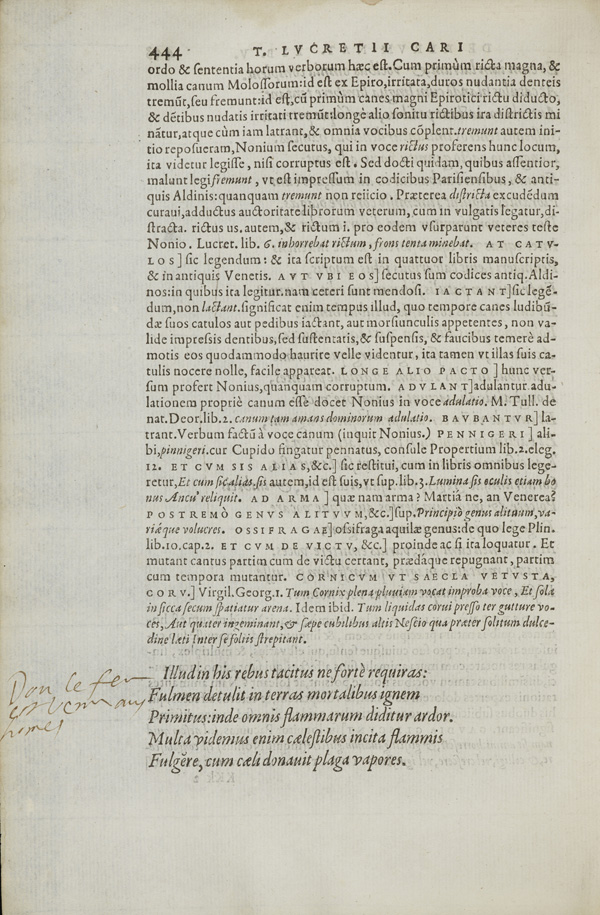 444 T. LVCRETII CARI
ordo & sententia horum verborum hæc est. Cum primùm ricta magna, &
mollia canum Molossorum: id est ex Epiro, irritata, duros nudantia denteis
tremūt, seu fremunt: id est, cū primùm canes magni Epirotici rictu diducto,
& dētibus nudatis irritati tremūt: longè alio sonitu rictibus ira districtis mi
nātur, atque cùm iam latrant, & omnia vocibus cōplent. tremunt autem ini-
tio reposueram, Nonium secutus, qui in voce rictus proferens hunc locum,
ita videtur legisse, nisi corruptus est. Sed docti quidam, quibus assentior,
malunt legi fremunt, vt est impressum in codicibus Parisiensibus, & anti-
quis Aldinis: quanquam tremunt non reiicio. Præterea districta excudēdum
curaui, adductus auctoritate librorum veterum, cum in vulgatis legatur, di-
stracta. rictus us. autem, & rictum i. pro eodem vsurparunt veteres teste
Nonio. Lucret. lib. 6. inhorrebat rictum, frons tenta minebat. AT CATV-
LOS] sic legendum: & ita scriptum est in quattuor libris manuscriptis,
& in antiquis Venetis. AVT VBI EOS] secutus sum codices antiq. Aldi-
nos: in quibus ita legitur. nam ceteri sunt mendosi. IACTANT] sic legē-
dum, non lactant. significat enim tempus illud, quo tempore canes ludibū-
dæ suos catulos aut pedibus iactant, aut morsiunculis appetentes, non va-
lide impressis dentibus, sed sustentatis, & suspensis, & faucibus temerè ad-
motis eos quodammodo haurire velle videntur, ita tamen vt illas suis ca-
tulis nocere nolle, facile appareat. LONGE ALIO PACTO] hunc ver-
sum profert Nonius, quanquam corruptum. ADVLANT] adulantur. adu-
lationem propriè canum esse docet Nonius in voce adulatio. M. Tull. de
nat. Deor. lib. 2. canum tam amans dominorum adulatio. BAVBANTVR] la-
trant. Verbum factū à voce canum (inquit Nonius.) PENNIGERI] ali-
bi, pinnigeri. cur Cupido fingatur pennatus, consule Propertium lib. 2. eleg.
12. ET CVM SIS ALIAS, &c.] sic restitui, cum in libris omnibus lege-
retur, Et cum sic alias. sis autem, id est suis, vt sup. lib. 3. Lumina sis oculis etiam bo
nus Ancu' reliquit. AD ARMA] quæ nam arma? Martiā ne, an Venerea?
POSTREMÒ GENVS ALITVVM, &c.] sup. Principiò genus alituum, va-
riæque volucres. OSSIFRAGAE] ossifraga aquilæ genus: de quo lege Plin.
lib. 10. cap. 2. ET CVM DE VICTV, &c.] proinde ac si ita loquatur. Et
mutant cantus partim cum de victu certant, prædáque repugnant, partim
cum tempora mutantur. CORNICVM VT SAECLA VETVSTA,
CORV.] Virgil. Georg. 1. Tum Cornix plena pluuiam vocat improba voce, Et sola
in sicca secum spatiatur arena. Idem ibid. Tum liquidas corui presso ter gutture vo-
ces, Aut quater ingeminant, & sæpe cubilibus altis Nescio qua præter solitum dulce-
dine læti Inter se foliis strepitant.
Illud in his rebus tacitus ne fortè requiras:
Fulmen detulit in terras mortalibus ignem
Primitus: inde omnis flammarum diditur ardor.
Multa videmus enim cælestibus incita flammis
Fulgĕre, cum cæli donauit plaga vapores.
Don le feu
est venu aus
homes